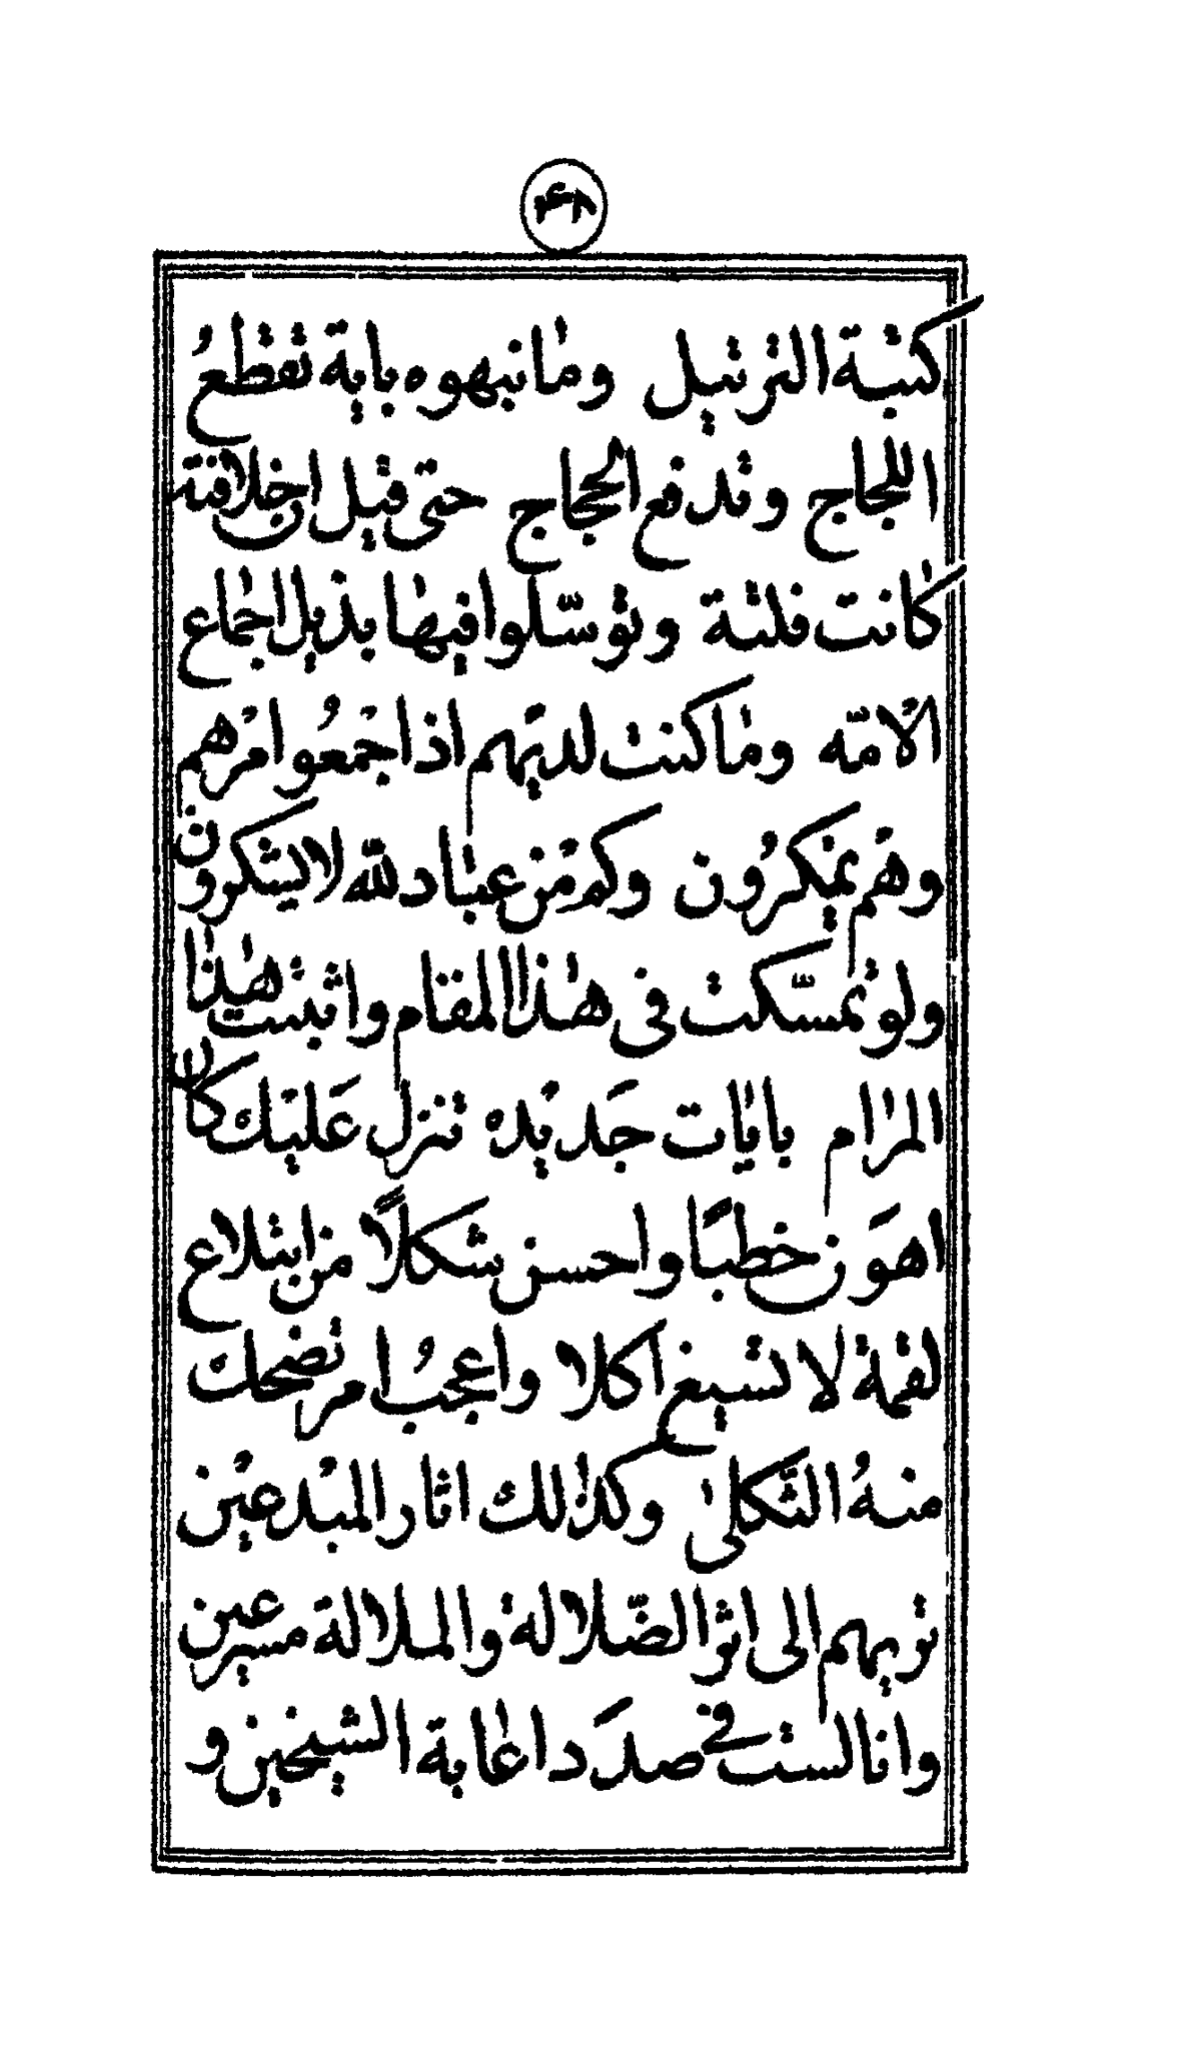 ۴۸
كتبة الترتيل ومانبهوه باية تقطع
اللجاج وتدفع الحجاج حتى قيل ان خلافته
كانت فلتة وتوسّلوا فيها بذيل اجماع
الامّه وما كنت لديهم اذ اجمعوا امرهم
وهم يمكرون وكم من عباد لله لا يشكرون
ولو تمسّكت فى هذا المقام واثبتت هذا
المرام بايات جديده تنزل عليك كان
اهون خطبًا واحسن شكلًا من ابتلاع
لقمة لا تسيغ اكلا واعجب امر تضحك
منه الثّكلى وكذلك اثار المبدعين
تريهم الى اثر الضّلالة والملالة مسرعين
وانا لست فى صدد اعابة الشيخين و